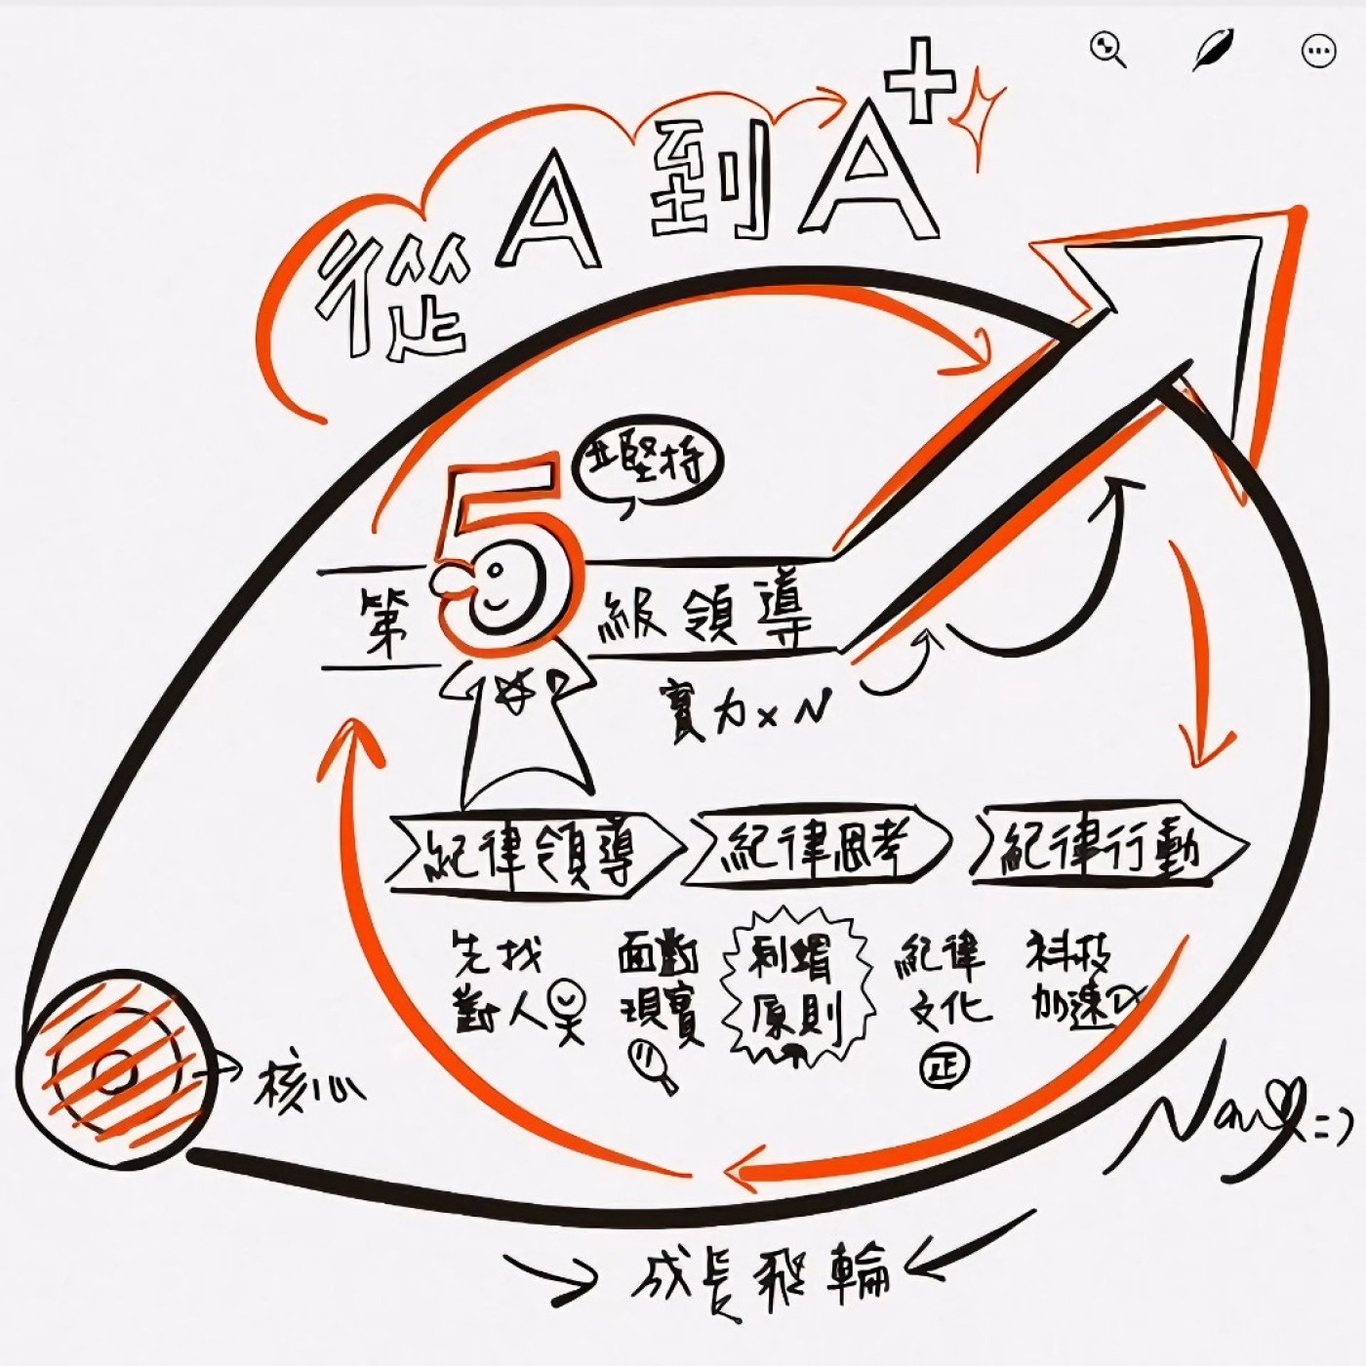 從A到A+
並堅持
第5級領導
實力×N
紀律領導
紀律思考
紀律行動
先找
對人
面對
現實
刺蝟
原則
紀律
文化
正
科技
加速
核心
Nancy=:)
成長飛輪